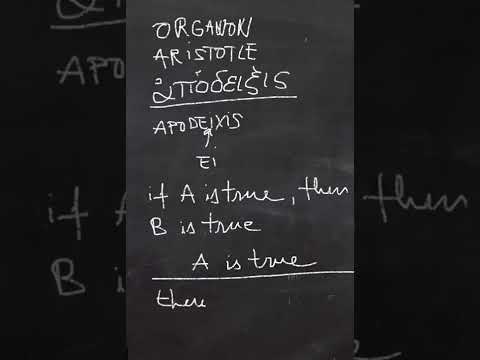 ORGANON
ARISTOTLE
ἀπόδειξις
APODEIXIS
Ei
if A is true, then
B is true
A is true
there